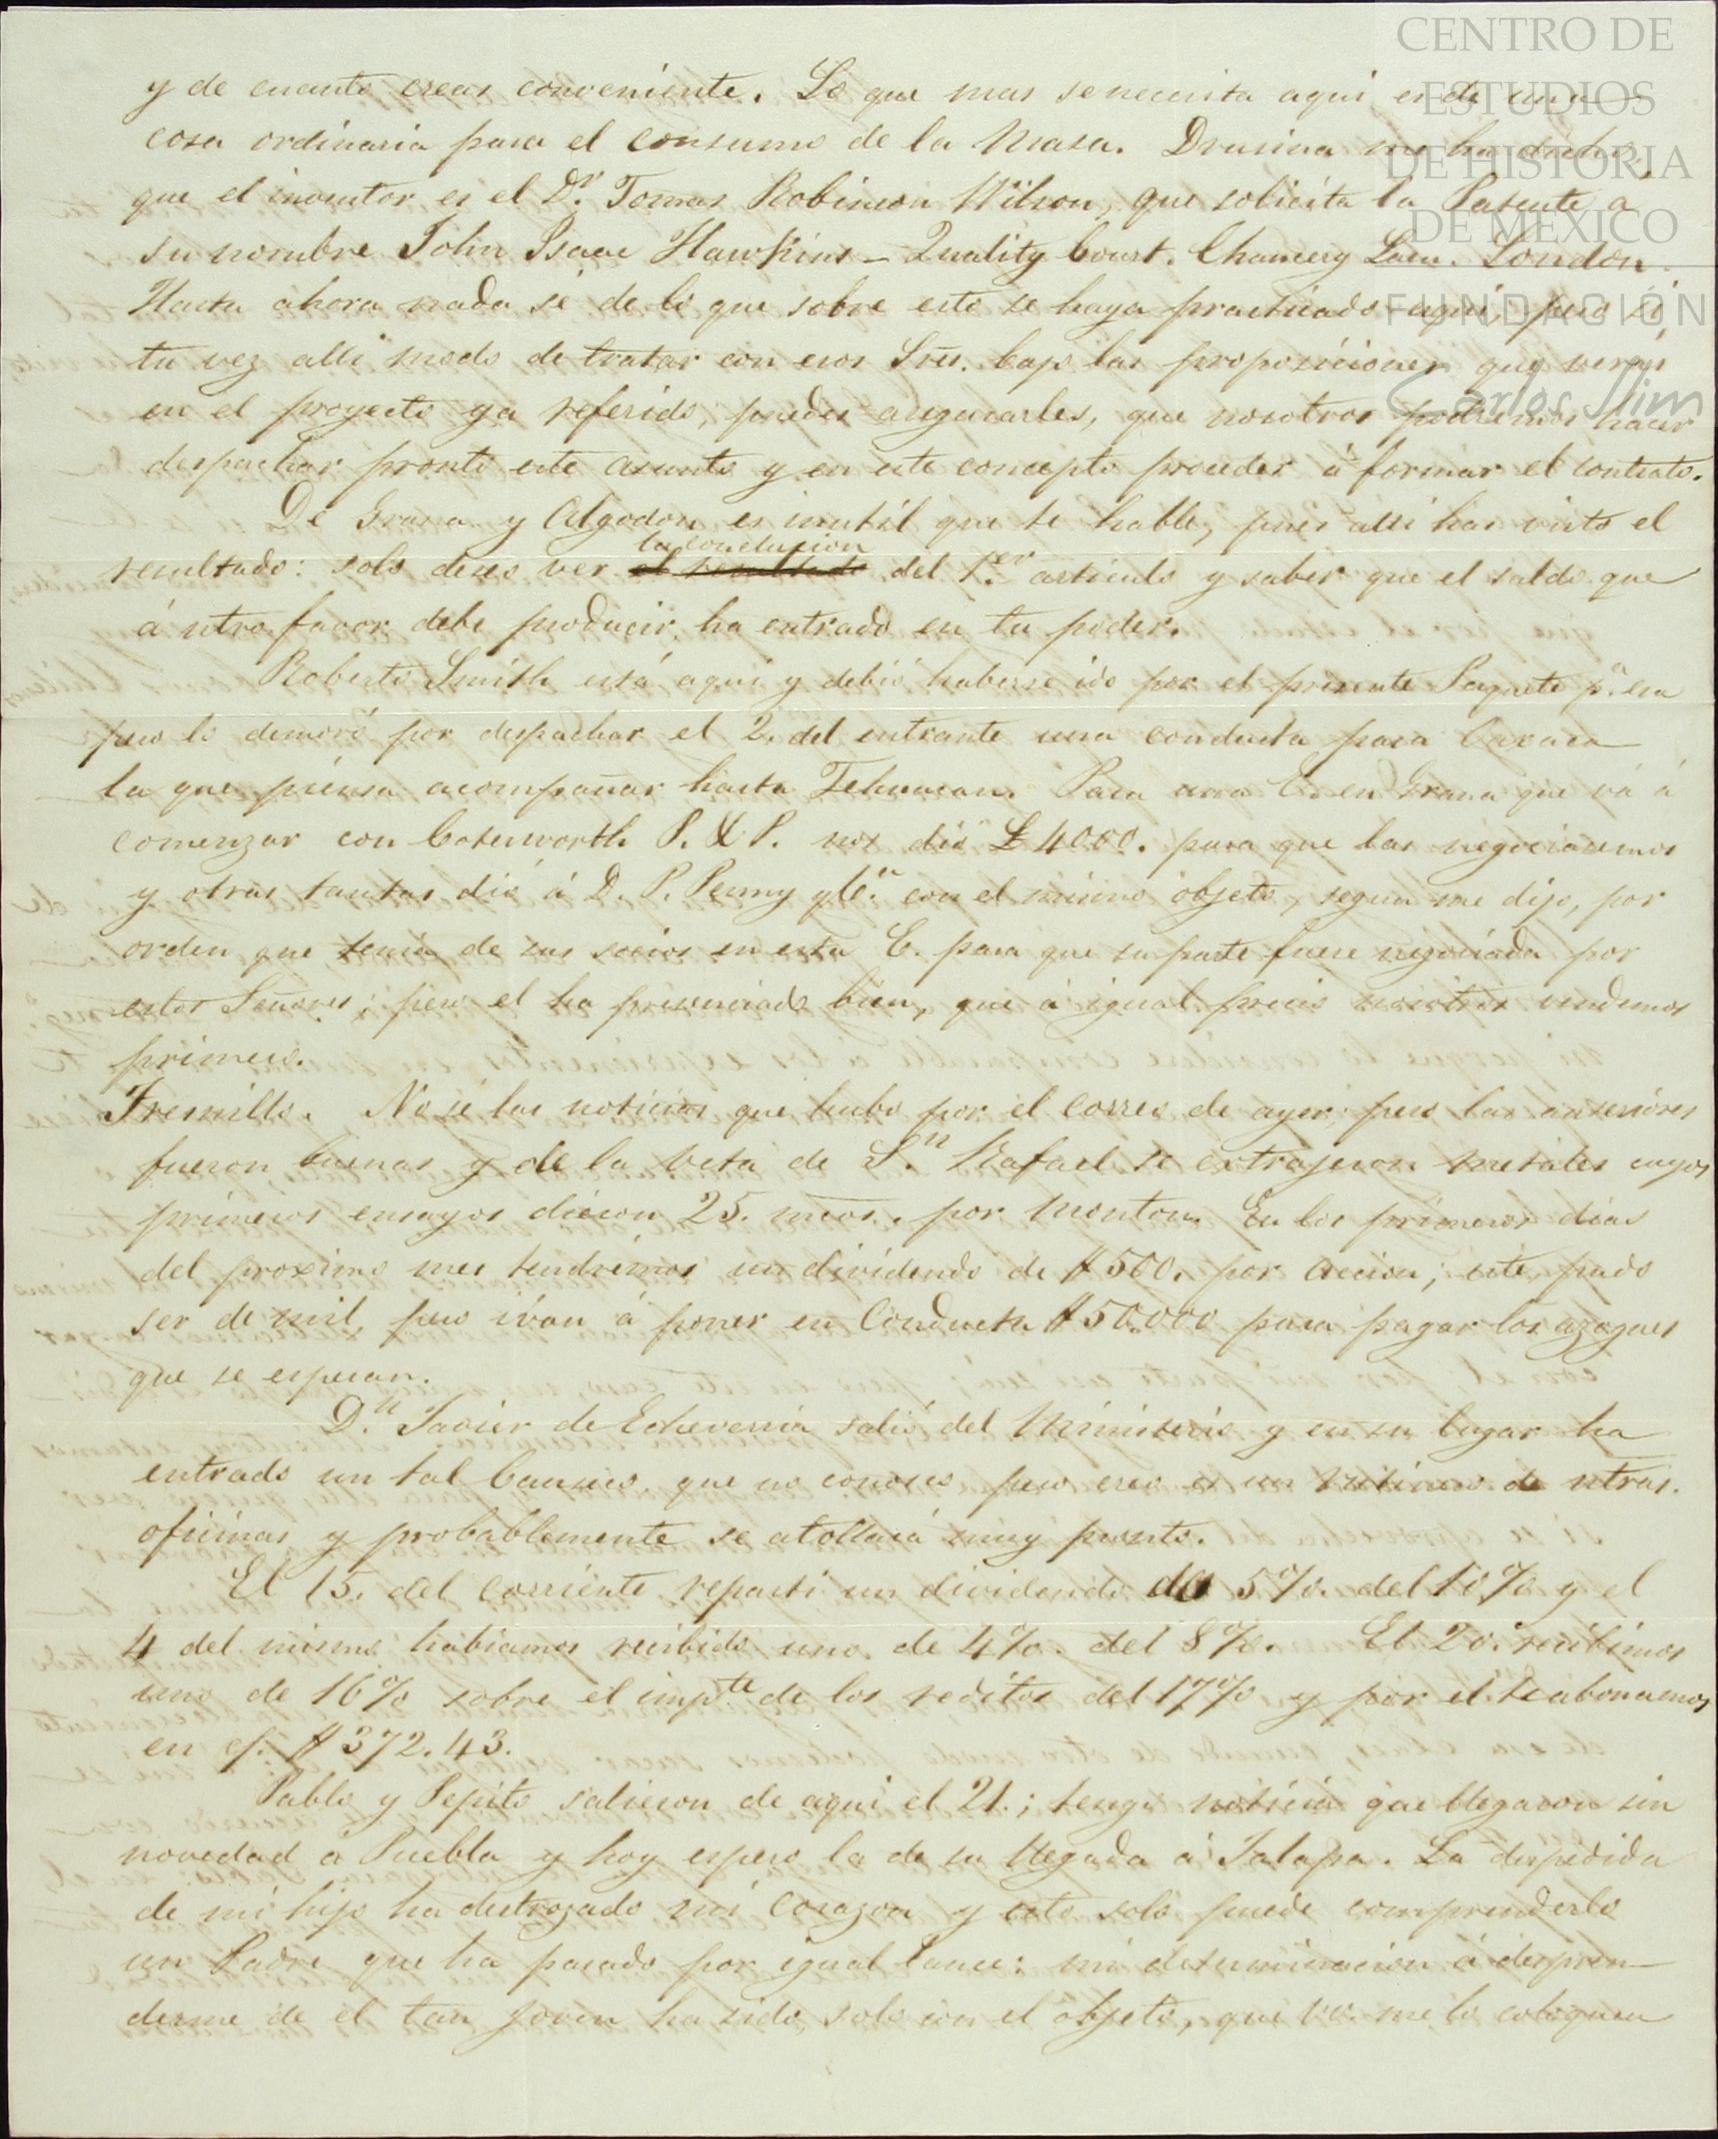 y de cuanto creas conveniente. Lo que mas se necesita aqui es de una
cosa ordinaria para el consumo de la Masa. Drusina me ha dicho
que el inventor es el Dr. Tomas Robinson Wilson, que solicita la Patente á
su nombre John Isaac Hawkins - Quality Court. Chancery Lane. London.
Hasta ahora nada sé de lo que sobre esto se haya practicado aqui, pero si
tu vez alli modo de tratar con esos Sres. bajo las proposiciones que verás
en el proyecto ya referido, puedes asegurarles, que nosotros podremos hacer
despachar pronto este asunto y en este concepto proceder á formar el contrato.
De Grana y Algodon es inutil que te hable, pues alli has visto el
la conclusion
resultado: solo deseo ver el resultado del 1.er articulo y saber que el saldo que
á ntro. favor debe producir, ha entrado en tu poder.
Roberto Smith está aqui y debió haberse ido por el presente Paquete pa. esa
pero lo demoró por despachar el 2. del entrante una conducta para Oaxaca
la que piensa acompañar hasta Tehuacan. Para una C. en Grana que vá á
comenzar con Cotesworth P. & P. nos dió £ 4000. para que las negociaremos
y otras tantas dió á D. P. Penny y Ca. con el mismo objeto, segun me dijo, por
orden que tenia de sus socios en esta C. para que su parte fuese negociada por
estos Señores; pero el ha presenciado bien, que á igual precio nosotros vendemos
primero.
Fresnillo. No sé las noticias que hubo por el correo de ayer; pero las anteriores
fueron buenas y de la beta de Sn. Rafael se extrajeron metales cuyos
primeros ensayos dieron 25. mcos. por monton. En los primeros dias
del proximo mes tendrémos un dividendo de $500. por accion; este pudo
ser de mil, pero ivan á poner en Conducta $50.000 para pagar los azogues
que se esperan.
Dn. Javier de Echeverria salió del Ministerio y en su lugar ha
entrado un tal Canseco, que no conosco, pero creo es un rutinero de ntras.
oficinas y probablemente se atollará muy pronto.
El 15. del corriente reparti un dividendo de 5%. del 10% y el
4 del mismo habiamos recibido uno de 4%. del 8%. El 20. recibimos
uno de 16% sobre el impte. de los reditos del 17% y por el te abonamos
en cf. $372.43.
Pablo y Pepito salieron de aqui el 21.; tengo noticia que llegaron sin
novedad á Puebla y hoy espero la de su llegada á Jalapa. La despedida
de mi hijo ha destrozado mi corazon y esto solo puede comprenderlo
un Padre que ha pasado por igual lance: mi determinacion á despren-
derme de el tan joven ha sido, solo con el objeto, que vs. me lo coloquen
CENTRO DE
ESTUDIOS
DE HISTORIA
DE MEXICO
FUNDACIÓN
Carlos Slim